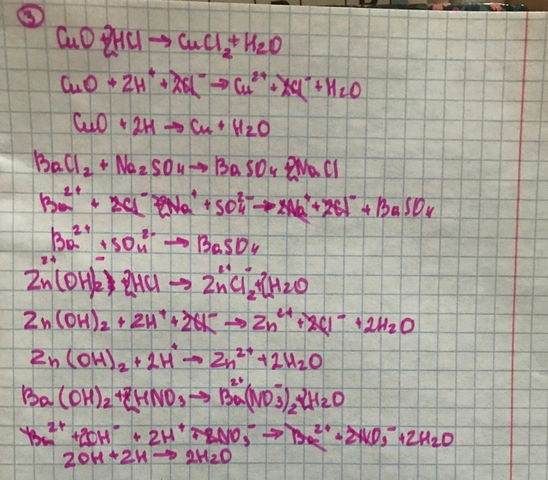 ③
CuO + 2HCl → CuCl₂ + H2O
CuO + 2H⁺ + 2Cl⁻ → Cu²⁺ + 2Cl⁻ + H2O
CuO + 2H → Cu + H2O
BaCl₂ + Na₂SO₄ → BaSO₄ + 2NaCl
Ba²⁺ + 2Cl⁻ + 2Na⁺ + SO₄²⁻ → 2Na⁺ + 2Cl⁻ + BaSO₄
Ba²⁺ + SO₄²⁻ → BaSO₄
Zn²⁺(OH)₂⁻ + 2HCl → Zn²⁺Cl₂⁻ + 2H2O
Zn(OH)₂ + 2H⁺ + 2Cl⁻ → Zn²⁺ + 2Cl⁻ + 2H2O
Zn(OH)₂ + 2H⁺ → Zn²⁺ + 2H2O
Ba(OH)₂ + 2HNO₃ → Ba²⁺(NO₃⁻)₂ + 2H2O
Ba²⁺ + 2OH⁻ + 2H⁺ + 2NO₃⁻ → Ba²⁺ + 2NO₃⁻ + 2H2O
2OH + 2H → 2H2O